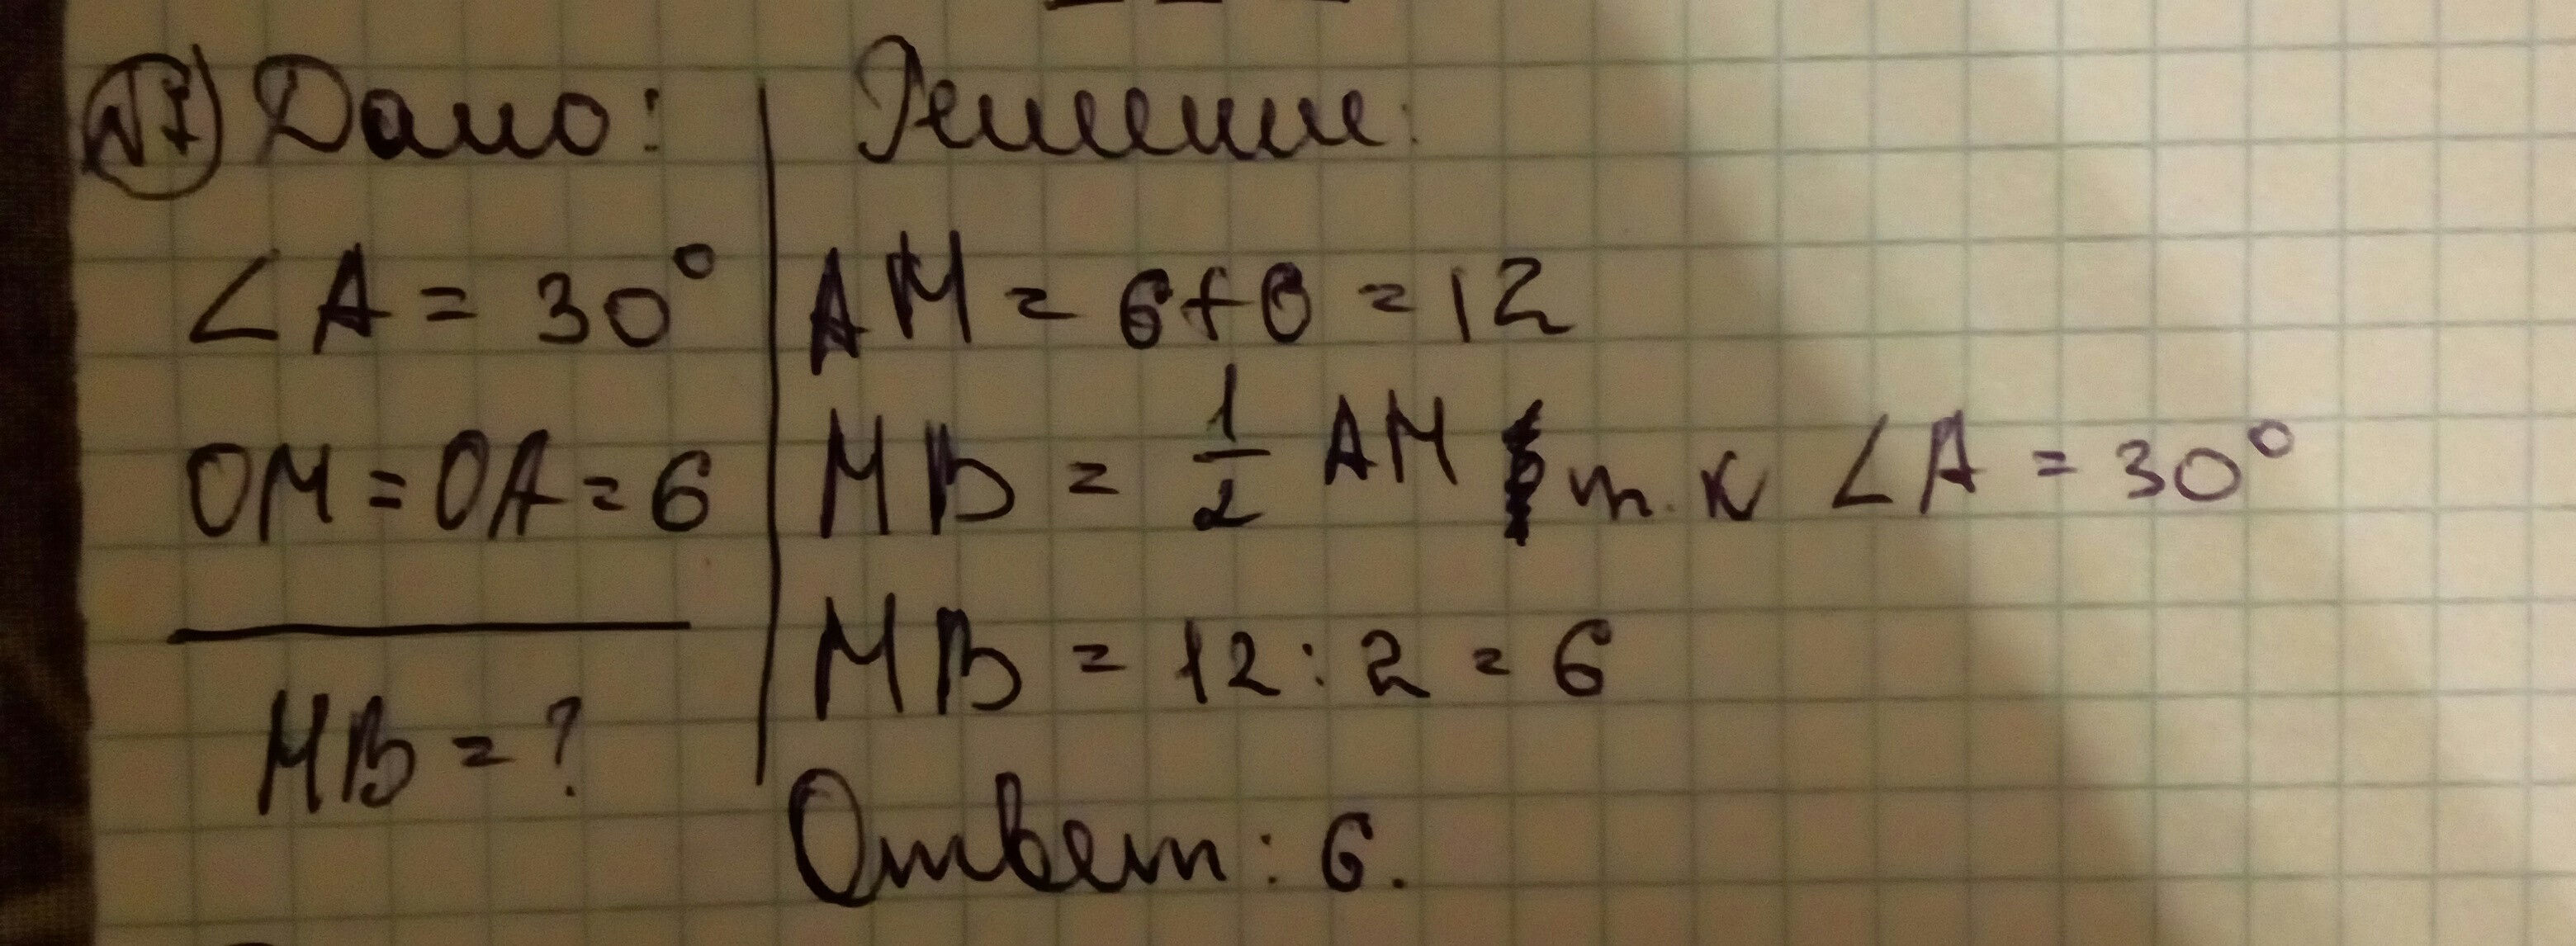 №7 Дано:
∠A = 30°
OM = OA = 6
MB = ?
Решение:
AM = 6+6 = 12
MB = 1/2 AM т.к ∠A = 30°
MB = 12 : 2 = 6
Ответ: 6.